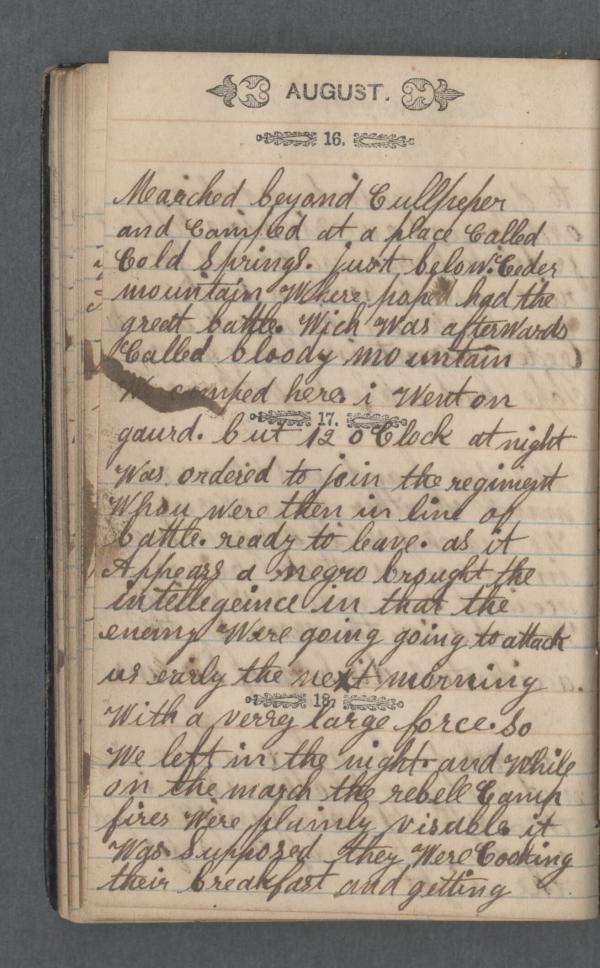 AUGUST.
16.
Marched beyond Cullpeper
and Camped at a place Called
Cold Springs. just below. Ceder
mountain Where pope had the
great battle. Wich Was afterwards
Called bloody mountain
We camped here. i Went on
17.
gaurd. but 12 o Clock at night
Was ordered to join the regiment
Whou were then in line of
battle. ready to leave. as it
Appears a negro brought the
intellegeince in that the
enemy Were going going to attack
us early the next morning.
18.
With a verrey large force. So
We left in the night. and While
on the march the rebell Camp
fires Were plainly visable it
Was Supposed they Were Cooking
their breakfast and getting